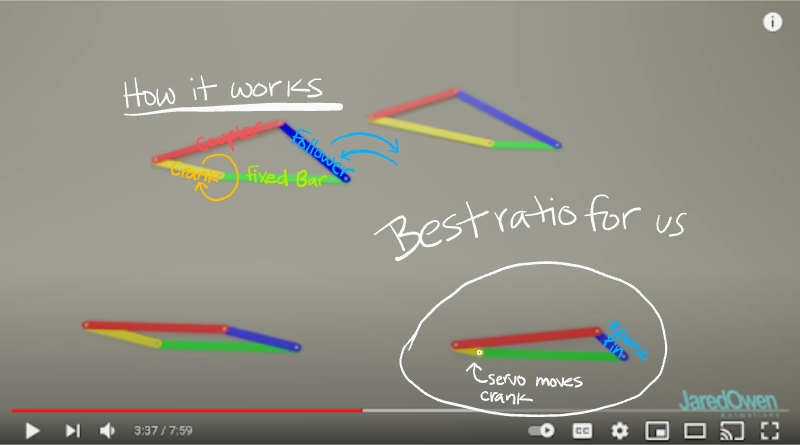 How it works
Coupler
Follower
Crank
Fixed Bar
Best ratio for us
Release
Pin
servo moves
crank
JaredOwen
Animations
3:37 / 7:59
CC